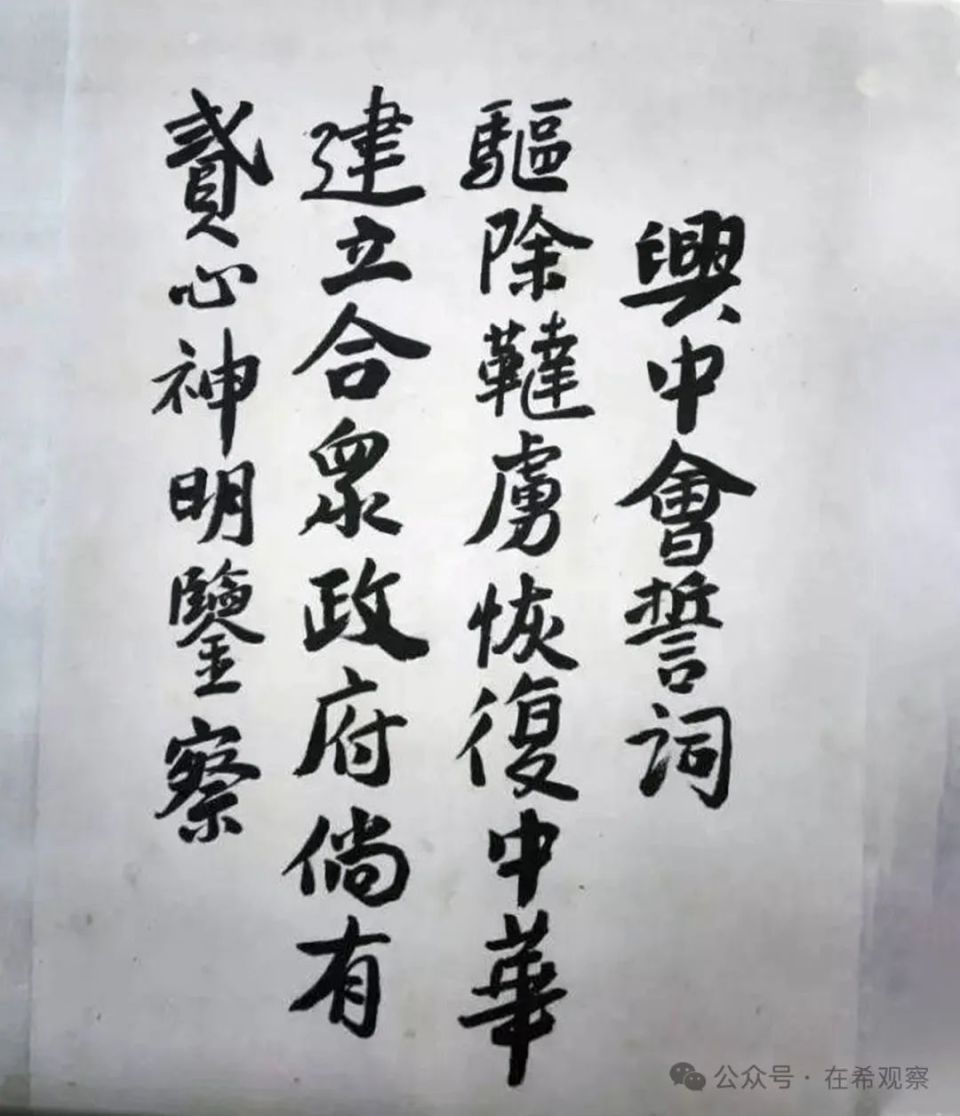 興中會誓詞
驅除韃虜恢復中華
建立合眾政府倘有
貳心神明鑒察
公众号 · 在希观察